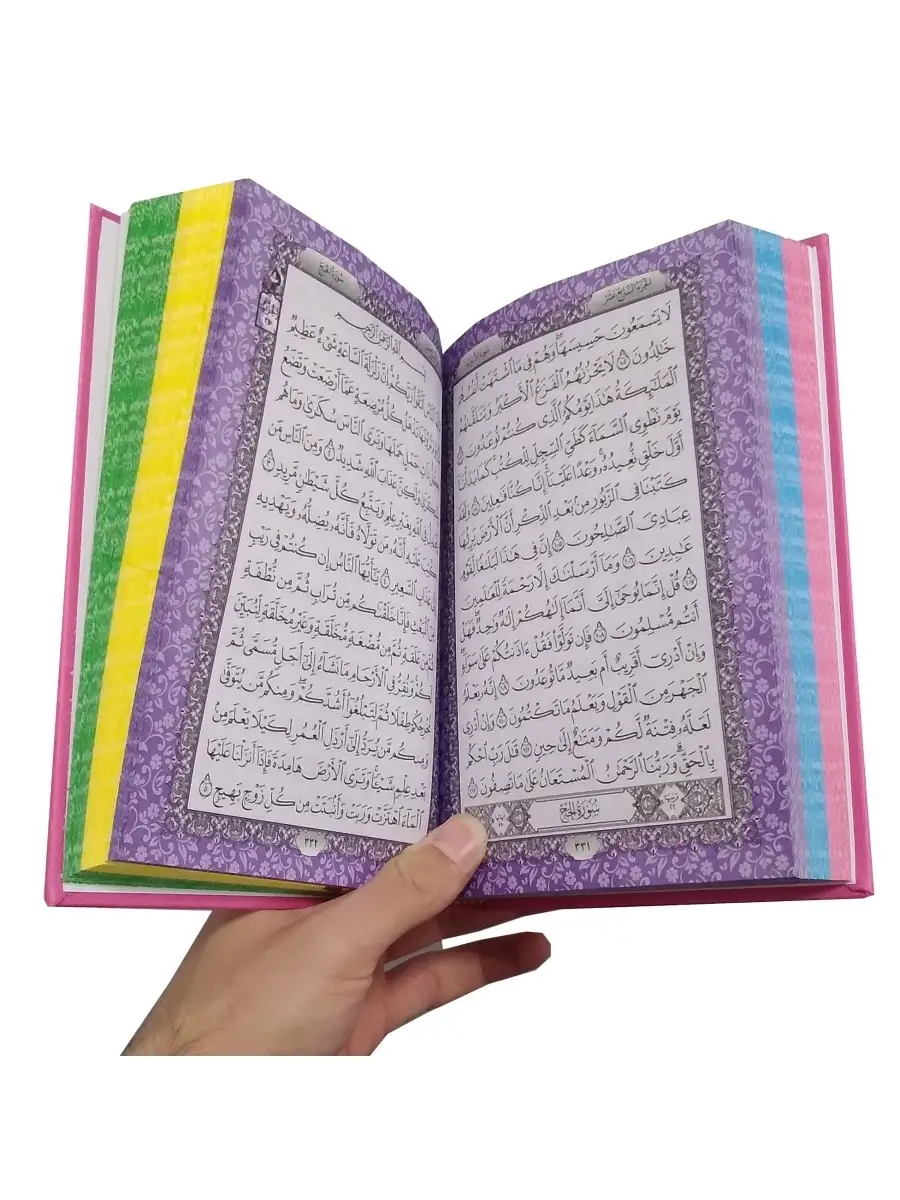 الجزء السابع عشر
لَا يَسْمَعُونَ حَسِيسَهَا وَهُمْ فِى مَا ٱشْتَهَتْ أَنفُسُهُمْ
خَٰلِدُونَ ١٠٢ لَا يَحْزُنُهُمُ ٱلْفَزَعُ ٱلْأَكْبَرُ وَتَتَلَقَّىٰهُمُ
ٱلْمَلَٰٓئِكَةُ هَٰذَا يَوْمُكُمُ ٱلَّذِى كُنتُمْ تُوعَدُونَ ١٠٣
يَوْمَ نَطْوِى ٱلسَّمَآءَ كَطَىِّ ٱلسِّجِلِّ لِلْكُتُبِ كَمَا بَدَأْنَآ
أَوَّلَ خَلْقٍ نُّعِيدُهُۥ وَعْدًا عَلَيْنَآ إِنَّا كُنَّا فَٰعِلِينَ ١٠٤ وَلَقَدْ
كَتَبْنَا فِى ٱلزَّبُورِ مِنۢ بَعْدِ ٱلذِّكْرِ أَنَّ ٱلْأَرْضَ يَرِثُهَا
عِبَادِىَ ٱلصَّٰلِحُونَ ١٠٥ إِنَّ فِى هَٰذَا لَبَلَٰغًا لِّقَوْمٍ
عَٰبِدِينَ ١٠٦ وَمَآ أَرْسَلْنَٰكَ إِلَّا رَحْمَةً لِّلْعَٰلَمِينَ
١٠٧ قُلْ إِنَّمَا يُوحَىٰٓ إِلَىَّ أَنَّمَآ إِلَٰهُكُمْ إِلَٰهٌ وَٰحِدٌ فَهَلْ
أَنتُم مُّسْلِمُونَ ١٠٨ فَإِن تَوَلَّوْا۟ فَقُلْ ءَاذَنتُكُمْ عَلَىٰ سَوَآءٍ
وَإِنْ أَدْرِىٓ أَقَرِيبٌ أَم بَعِيدٌ مَّا تُوعَدُونَ ١٠٩ إِنَّهُۥ يَعْلَمُ
ٱلْجَهْرَ مِنَ ٱلْقَوْلِ وَيَعْلَمُ مَا تَكْتُمُونَ ١١٠ وَإِنْ أَدْرِى
لَعَلَّهُۥ فِتْنَةٌ لَّكُمْ وَمَتَٰعٌ إِلَىٰ حِينٍ ١١١ قَٰلَ رَبِّ ٱحْكُم
بِٱلْحَقِّ وَرَبُّنَا ٱلرَّحْمَٰنُ ٱلْمُسْتَعَانُ عَلَىٰ مَا تَصِفُونَ ١١٢
سُورَةُ الحَجِّ
٣٣١
سُورَةُ الحَجِّ
ٱللَّهِ ٱلرَّحْمَٰنِ ٱلرَّحِيمِ
ٱتَّقُوا۟ رَبَّكُمْ إِنَّ زَلْزَلَةَ ٱلسَّاعَةِ شَىْءٌ عَظِيمٌ
تَذْهَلُ كُلُّ مُرْضِعَةٍ عَمَّآ أَرْضَعَتْ وَتَضَعُ
حَمْلٍ حَمْلَهَا وَتَرَى ٱلنَّاسَ سُكَٰرَىٰ وَمَا هُم
وَلَٰكِنَّ عَذَابَ ٱللَّهِ شَدِيدٌ ٢ وَمِنَ ٱلنَّاسِ مَن
فِى ٱللَّهِ بِغَيْرِ عِلْمٍ وَيَتَّبِعُ كُلَّ شَيْطَٰنٍ مَّرِيدٍ ٣
عَلَيْهِ أَنَّهُۥ مَن تَوَلَّاهُ فَأَنَّهُۥ يُضِلُّهُۥ وَيَهْدِيهِ
عَذَابِ ٱلسَّعِيرِ ٤ يَٰٓأَيُّهَا ٱلنَّاسُ إِن كُنتُمْ فِى رَيْبٍ
ٱلْبَعْثِ فَإِنَّا خَلَقْنَٰكُم مِّن تُرَابٍ ثُمَّ مِن نُّطْفَةٍ
مِنْ عَلَقَةٍ ثُمَّ مِن مُّضْغَةٍ مُّخَلَّقَةٍ وَغَيْرِ مُخَلَّقَةٍ لِّنُبَيِّنَ
لَكُمْ وَنُقِرُّ فِى ٱلْأَرْحَامِ مَا نَشَآءُ إِلَىٰٓ أَجَلٍ مُّسَمًّى ثُمَّ
نُخْرِجُكُمْ طِفْلًا ثُمَّ لِتَبْلُغُوٓا۟ أَشُدَّكُمْ وَمِنكُم مَّن يُتَوَفَّىٰ
وَمِنكُم مَّن يُرَدُّ إِلَىٰٓ أَرْذَلِ ٱلْعُمُرِ لِكَيْلَا يَعْلَمَ مِنۢ
بَعْدِ عِلْمٍ شَيْـًٔا وَتَرَى ٱلْأَرْضَ هَامِدَةً فَإِذَآ أَنزَلْنَا عَلَيْهَا
ٱلْمَآءَ ٱهْتَزَّتْ وَرَبَتْ وَأَنۢبَتَتْ مِن كُلِّ زَوْجٍۭ بَهِيجٍ ٥
٣٣٢